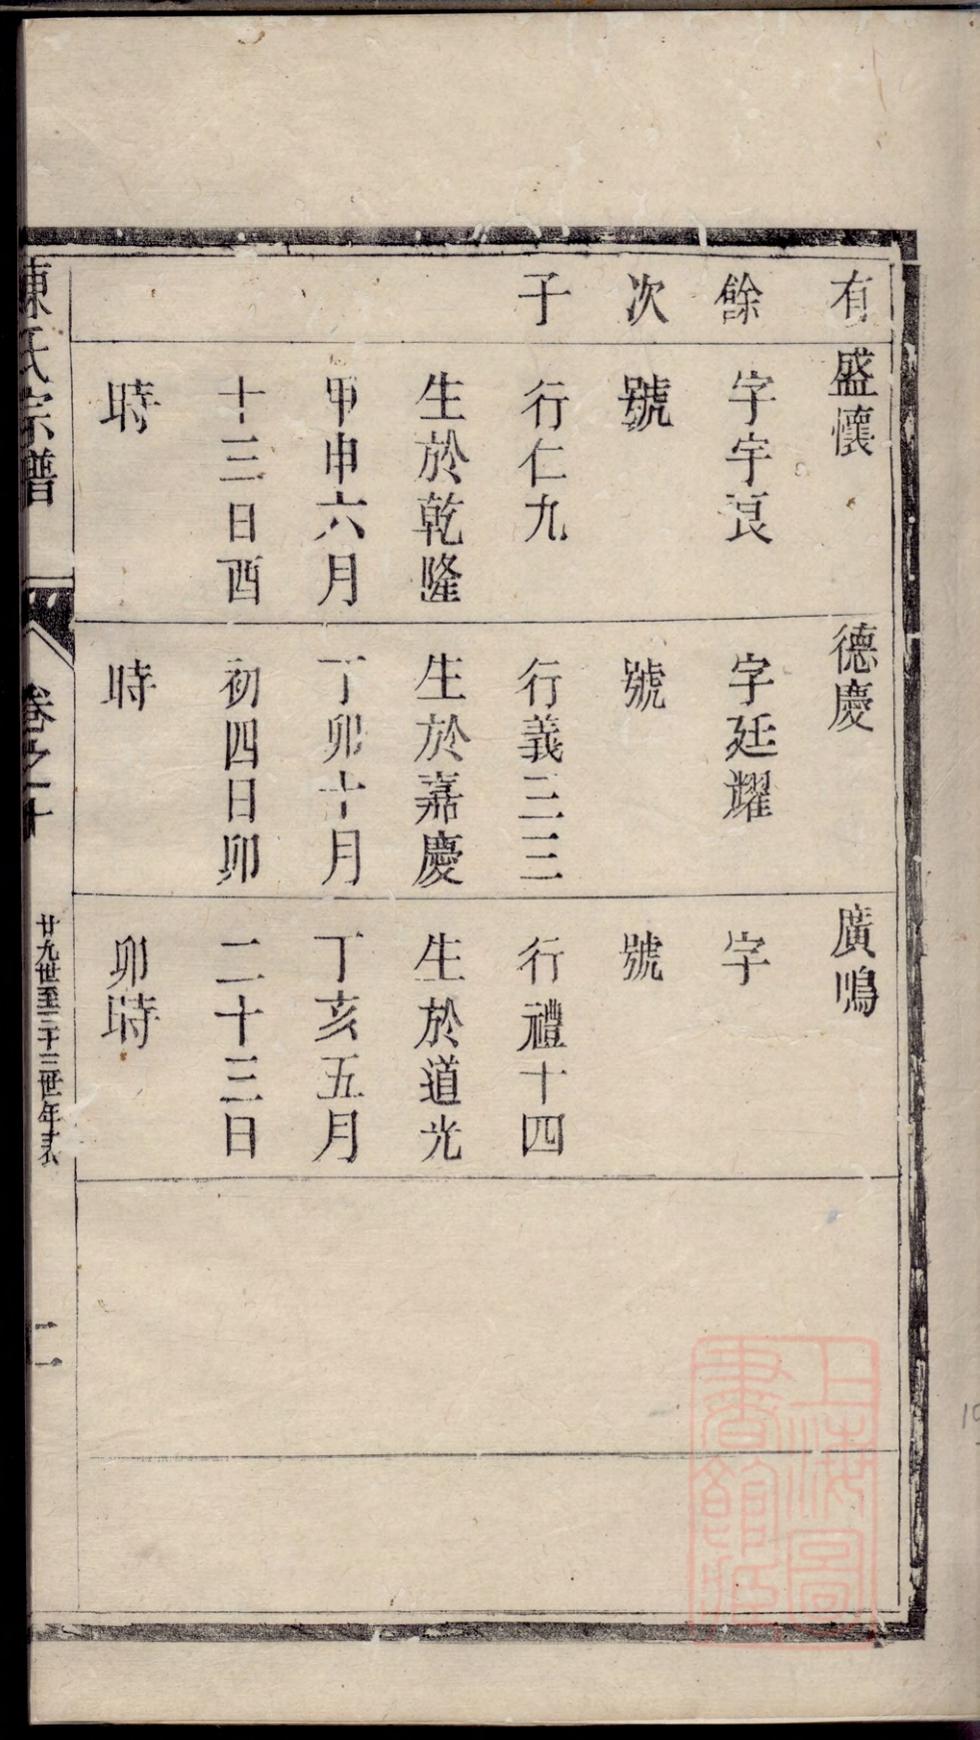 有
餘
次
子
盛懷
字宇良
號
行仁九
生於乾隆
甲申六月
十三日酉
時
德慶
字廷耀
號
行義三三
生於嘉慶
丁卯十月
初四日卯
時
廣鳴
字
號
行禮十四
生於道光
丁亥五月
二十三日
卯時
氏宗譜
卷之十
廿九世至三十三世年表
二
上海圖
書館藏